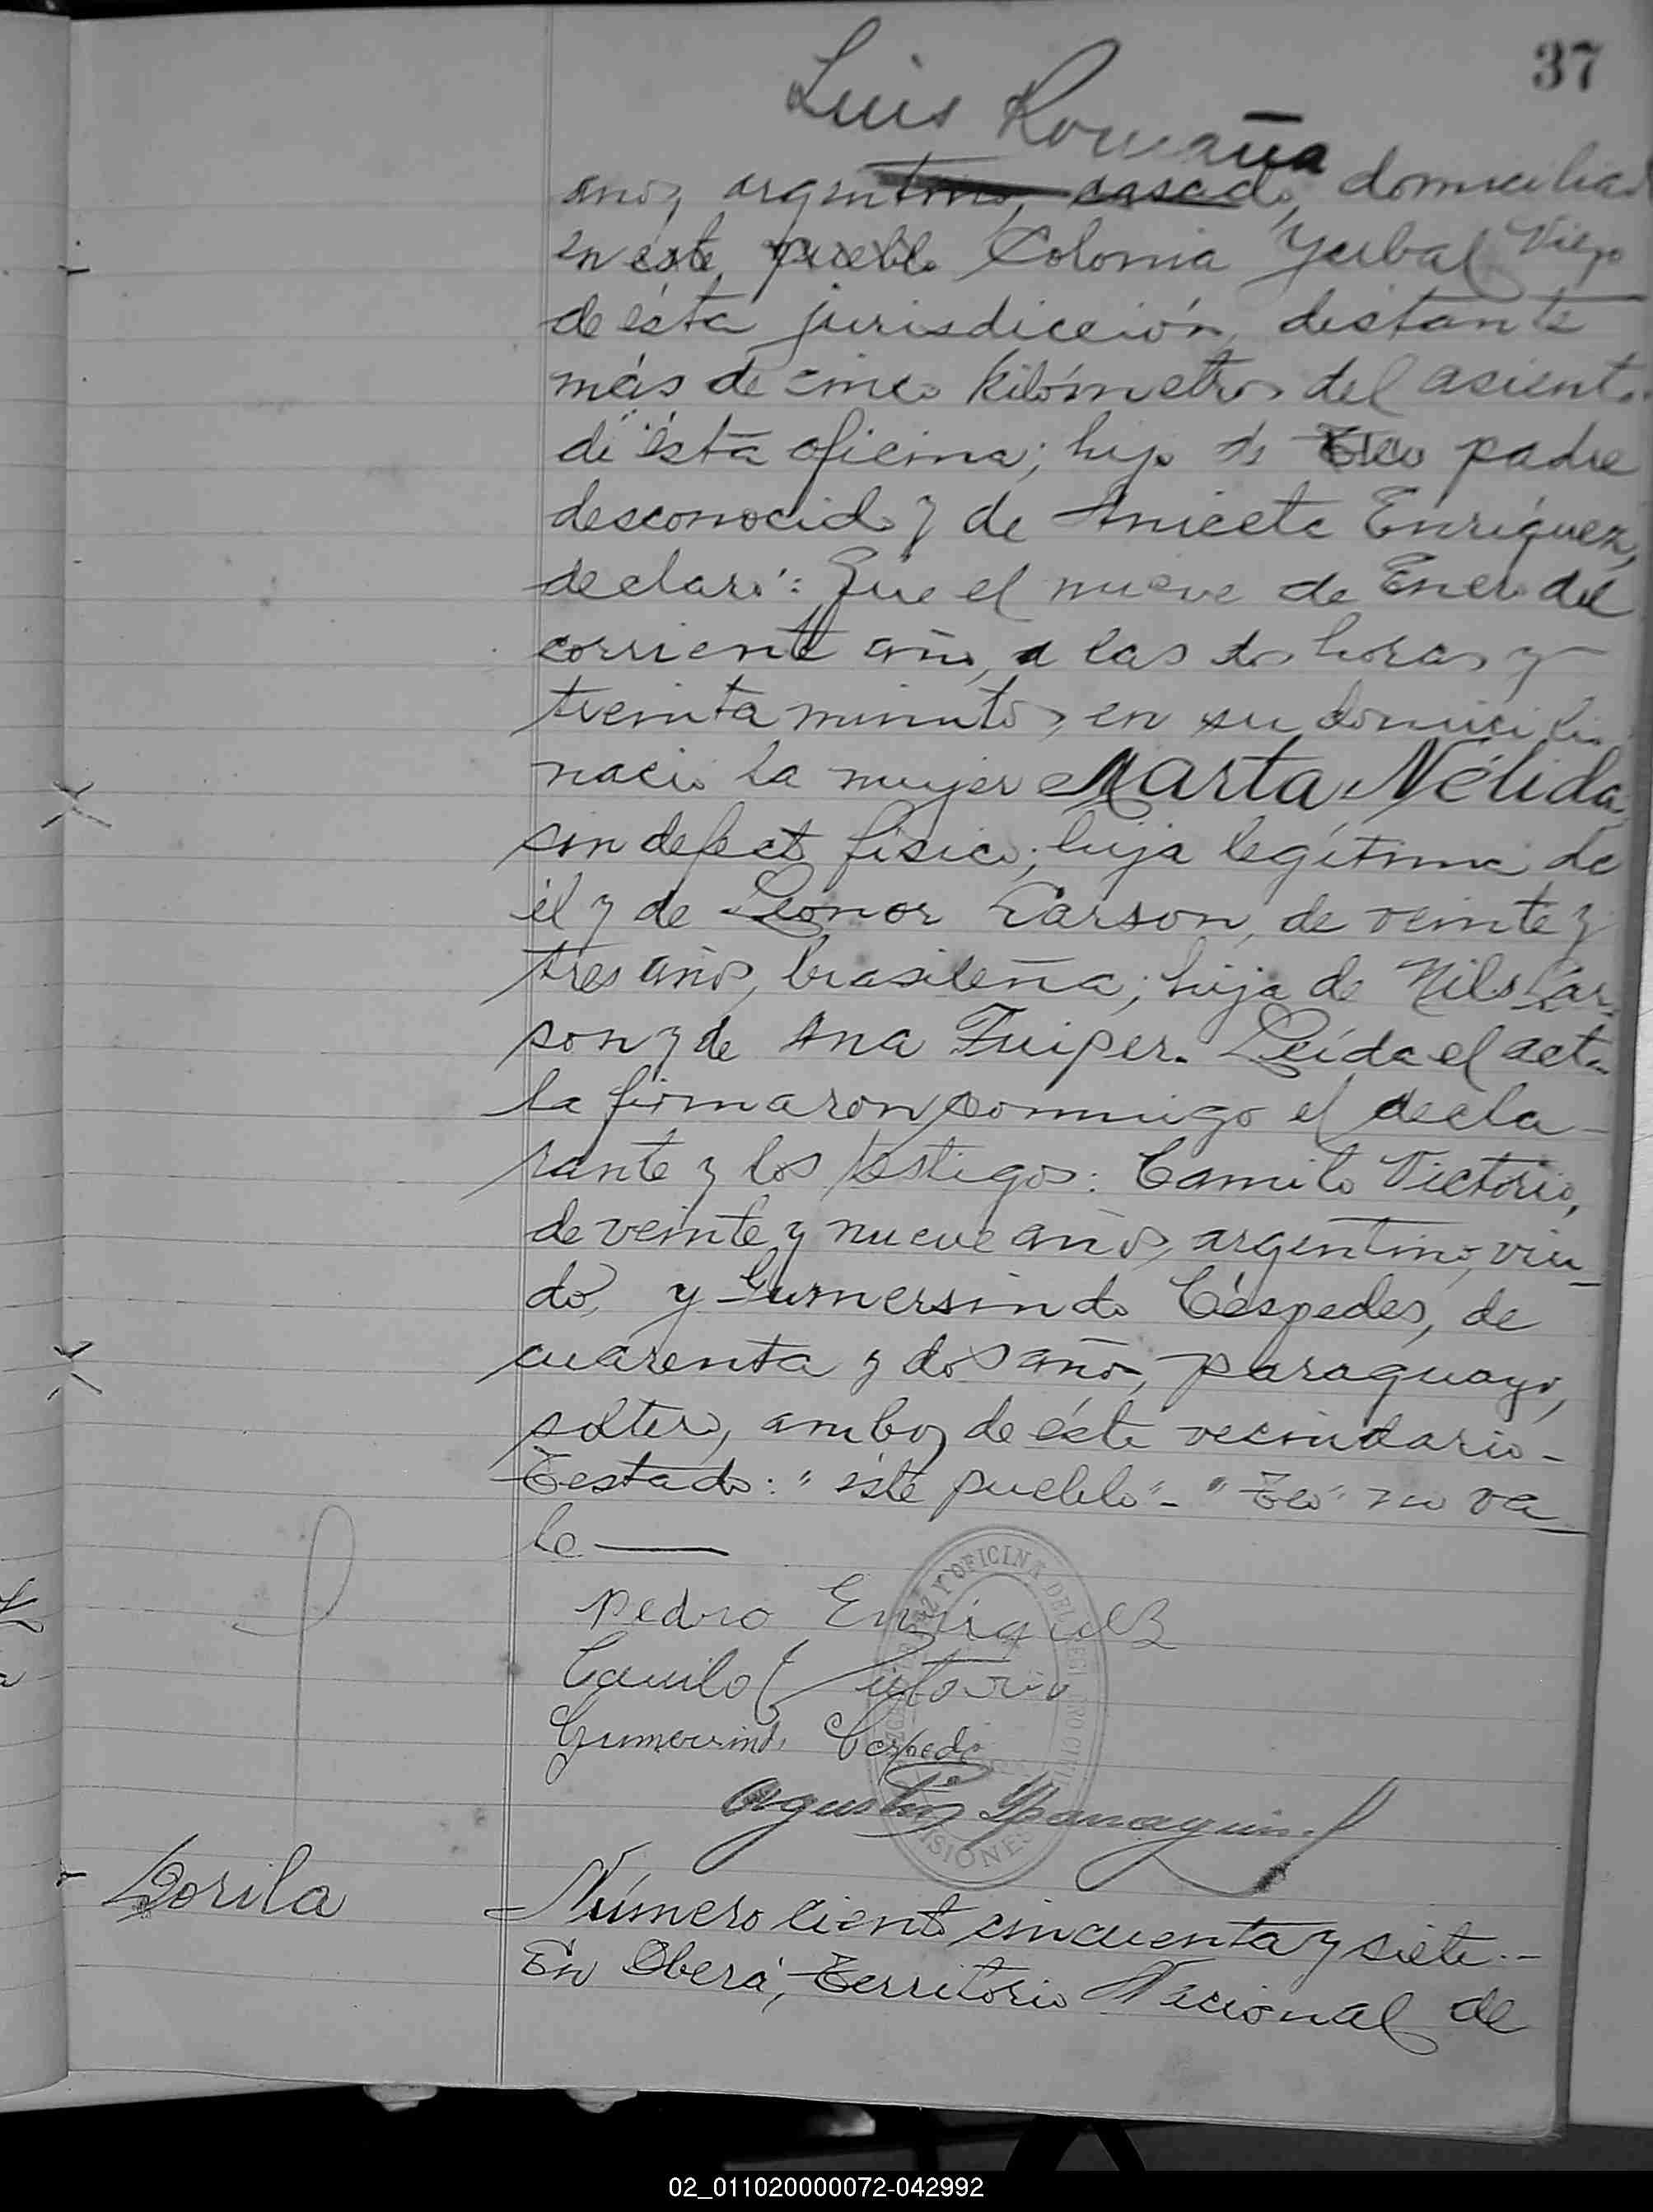 37
Luis Romaña
años argentino, casado, domiciliado
en este pueblo Colonia Yerbal Viejo
de ésta jurisdicción, distante
más de cinco kilómetros del asiento
de ésta oficina; hijo de Teo padre
desconocido y de Aniceta Enriquez,
declaró: Que el nueve de Enero del
corriente año, a las dos horas y
treinta minutos, en su domicilio
nació la mujer Marta Nélida,
sin defecto físico; hija legítima de
él y de Leonor Larson, de veinte y
tres años, brasileña; hija de Nils Lar-
son y de Ana Fuiper. Leída el acta
la firmaron conmigo el decla-
rante y los testigos: Camilo Victorio,
de veinte y nueve años, argentino, viu-
do, y Gumersindo Céspedes, de
cuarenta y dos años, paraguayo,
soltero, ambos de éste vecindario -
Testado: "éste pueblo" - "Teo" no va-
le —
Pedro Enriquez
Camilo Victorio
Gumersindo Cespedes
Agustin
JUZGADO DE PAZ Y OFICINA DEL REGISTRO CIVIL
MISIONES
Dorila
Número ciento cincuenta y siete. -
En Oberá, Territorio Nacional de
02_011020000072-042992